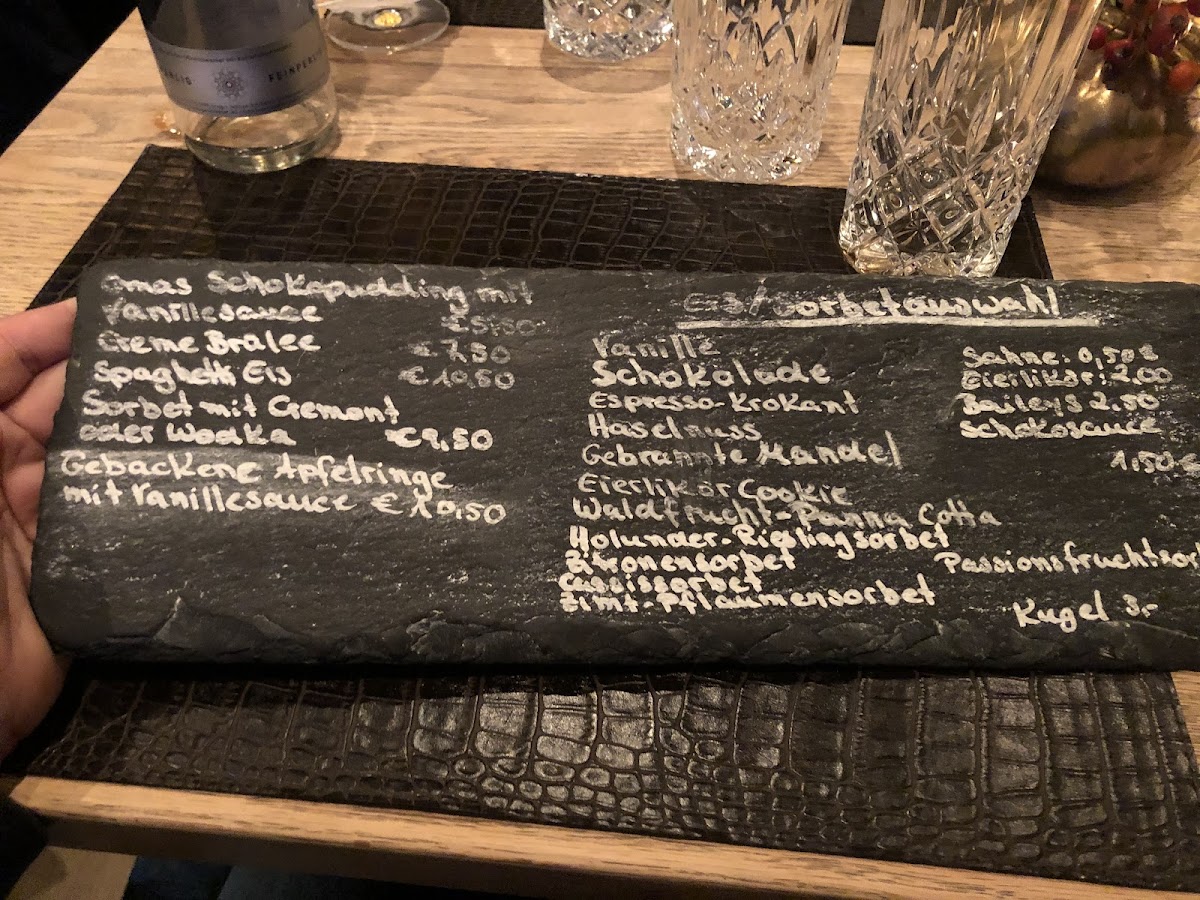 FEINPERL
Omas Schokapudding mit
Vanillesauce €5,50
Creme Brálee €7,50
Spaghetti Eis €10,50
Sorbet mit Cremont
oder Wodka €9,50
Gebackene Apfelringe
mit Vanillesauce €10,50
Eis/Sorbetauswahl
Vanille
Schokolade
Espresso-Krokant
Haselnuss
Gebrannte Mandel
Eierlikör Cookie
Waldfrucht-Panna Cotta
Holunder-Rieslingsorbet
Zitronensorbet
Cassissorbet
Zimt-Pflaumensorbet
Sahne: 0,50€
Eierlikör: 2,00
Baileys 2,50
Schokosauce
1,50€
Passionsfruchtsor
Kugel 3.-